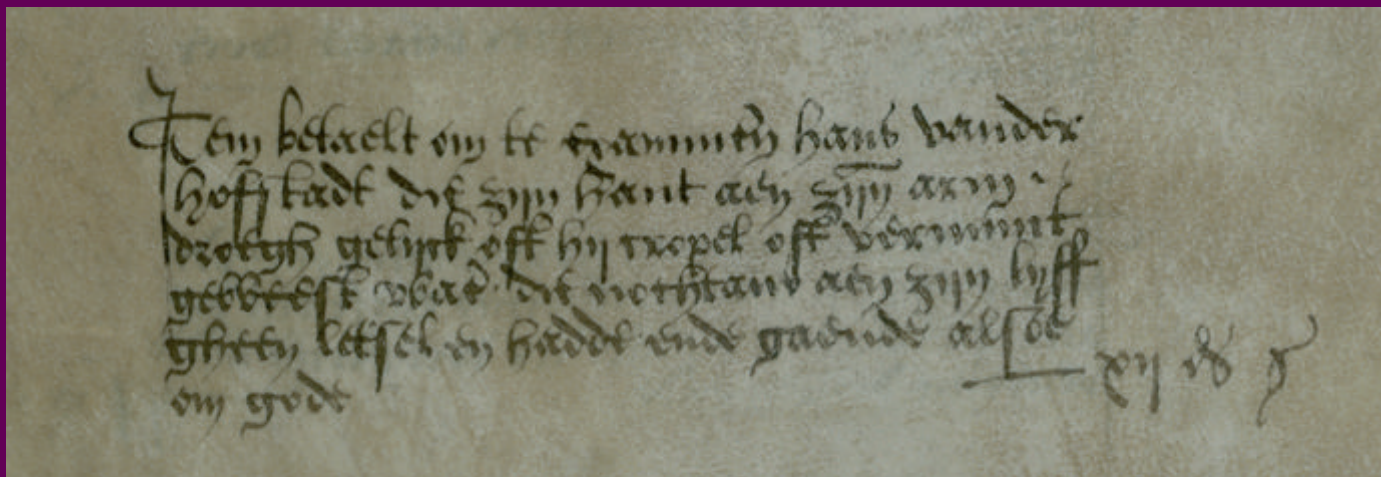 Item betaelt om te examineren hans vander
hofstadt die zijn hant aen zijnen arm
droegh gelijck oft hij cropel oft vermimt
geweest ware die nochtans aen zijn lijff
gheen letsel en hadde ende gaende alsoe
om gode xij d g